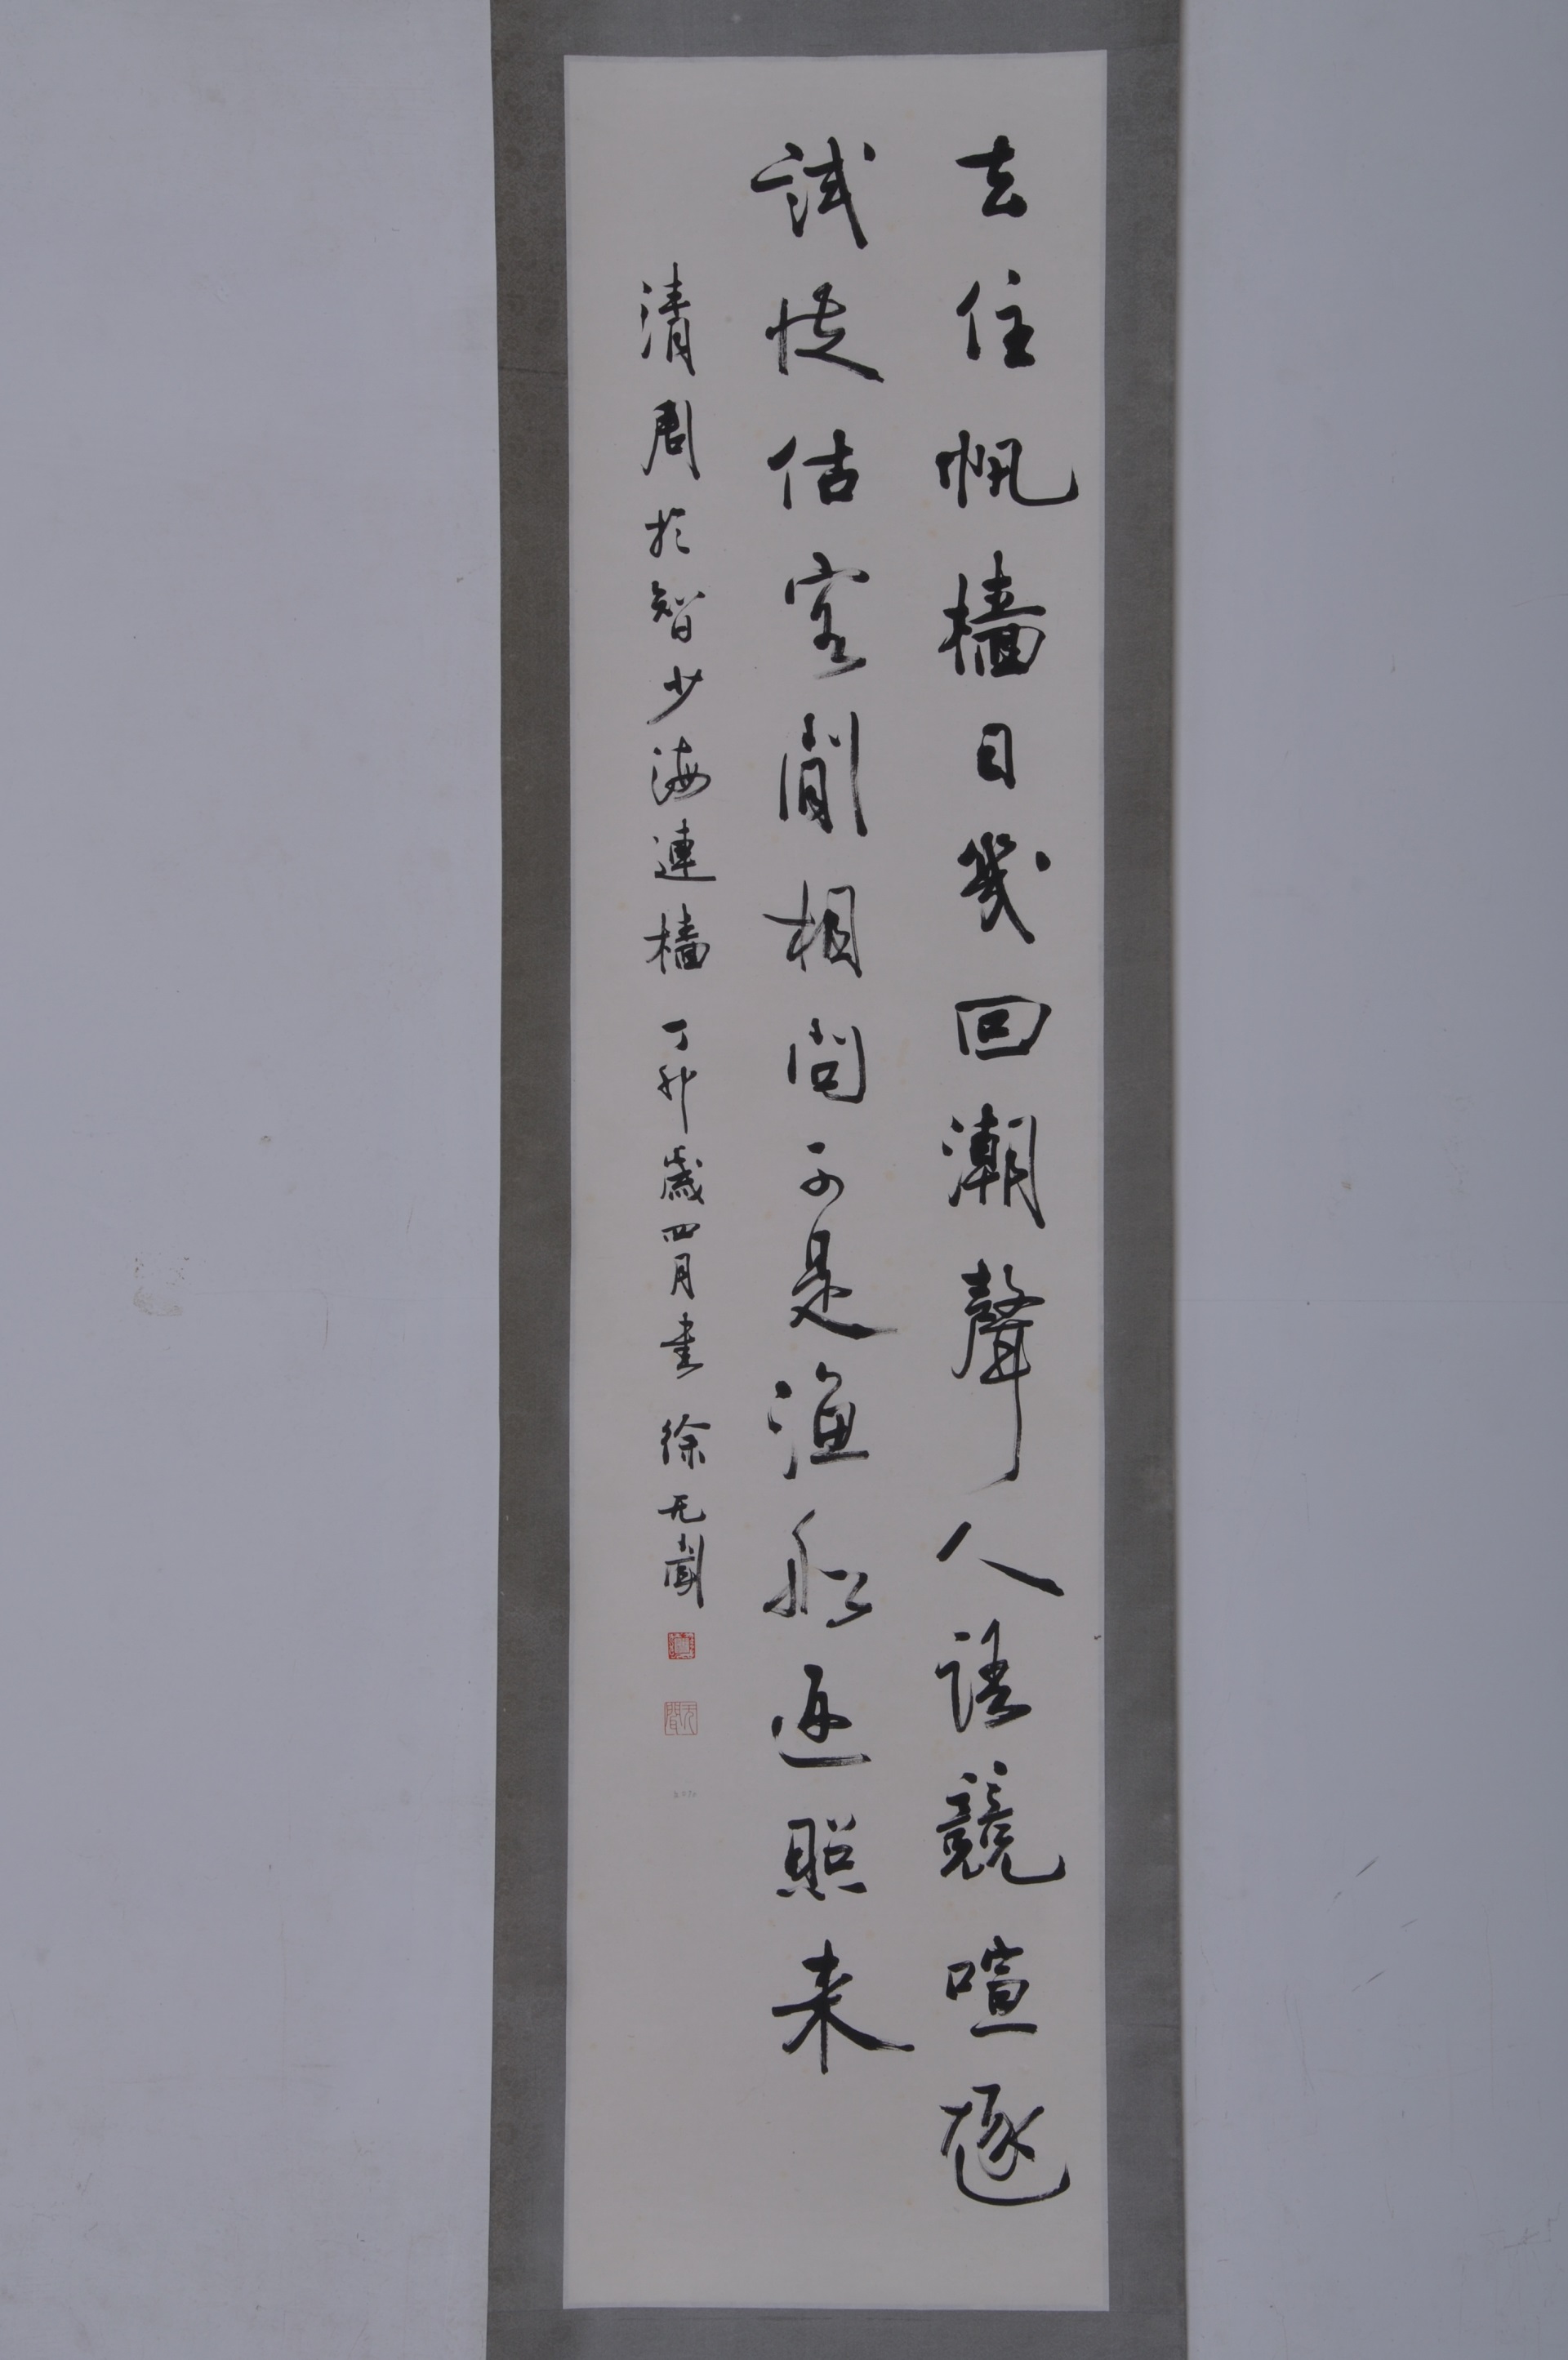 去住帆檣日幾回潮聲人語競喧豗
試從估客閒相問可是漁船返照来
清周於智少海連檣 丁卯歲四月書 徐无聞